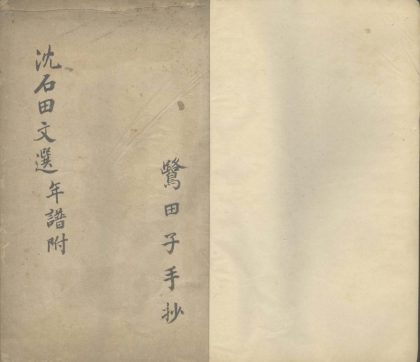 沈石田文選年譜附
田子手抄